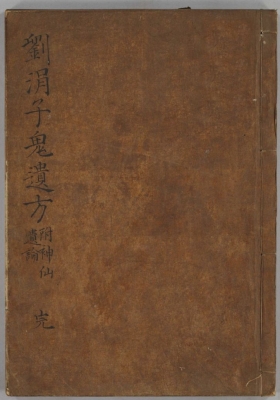 劉涓子鬼遺方
附神仙
遺論
完